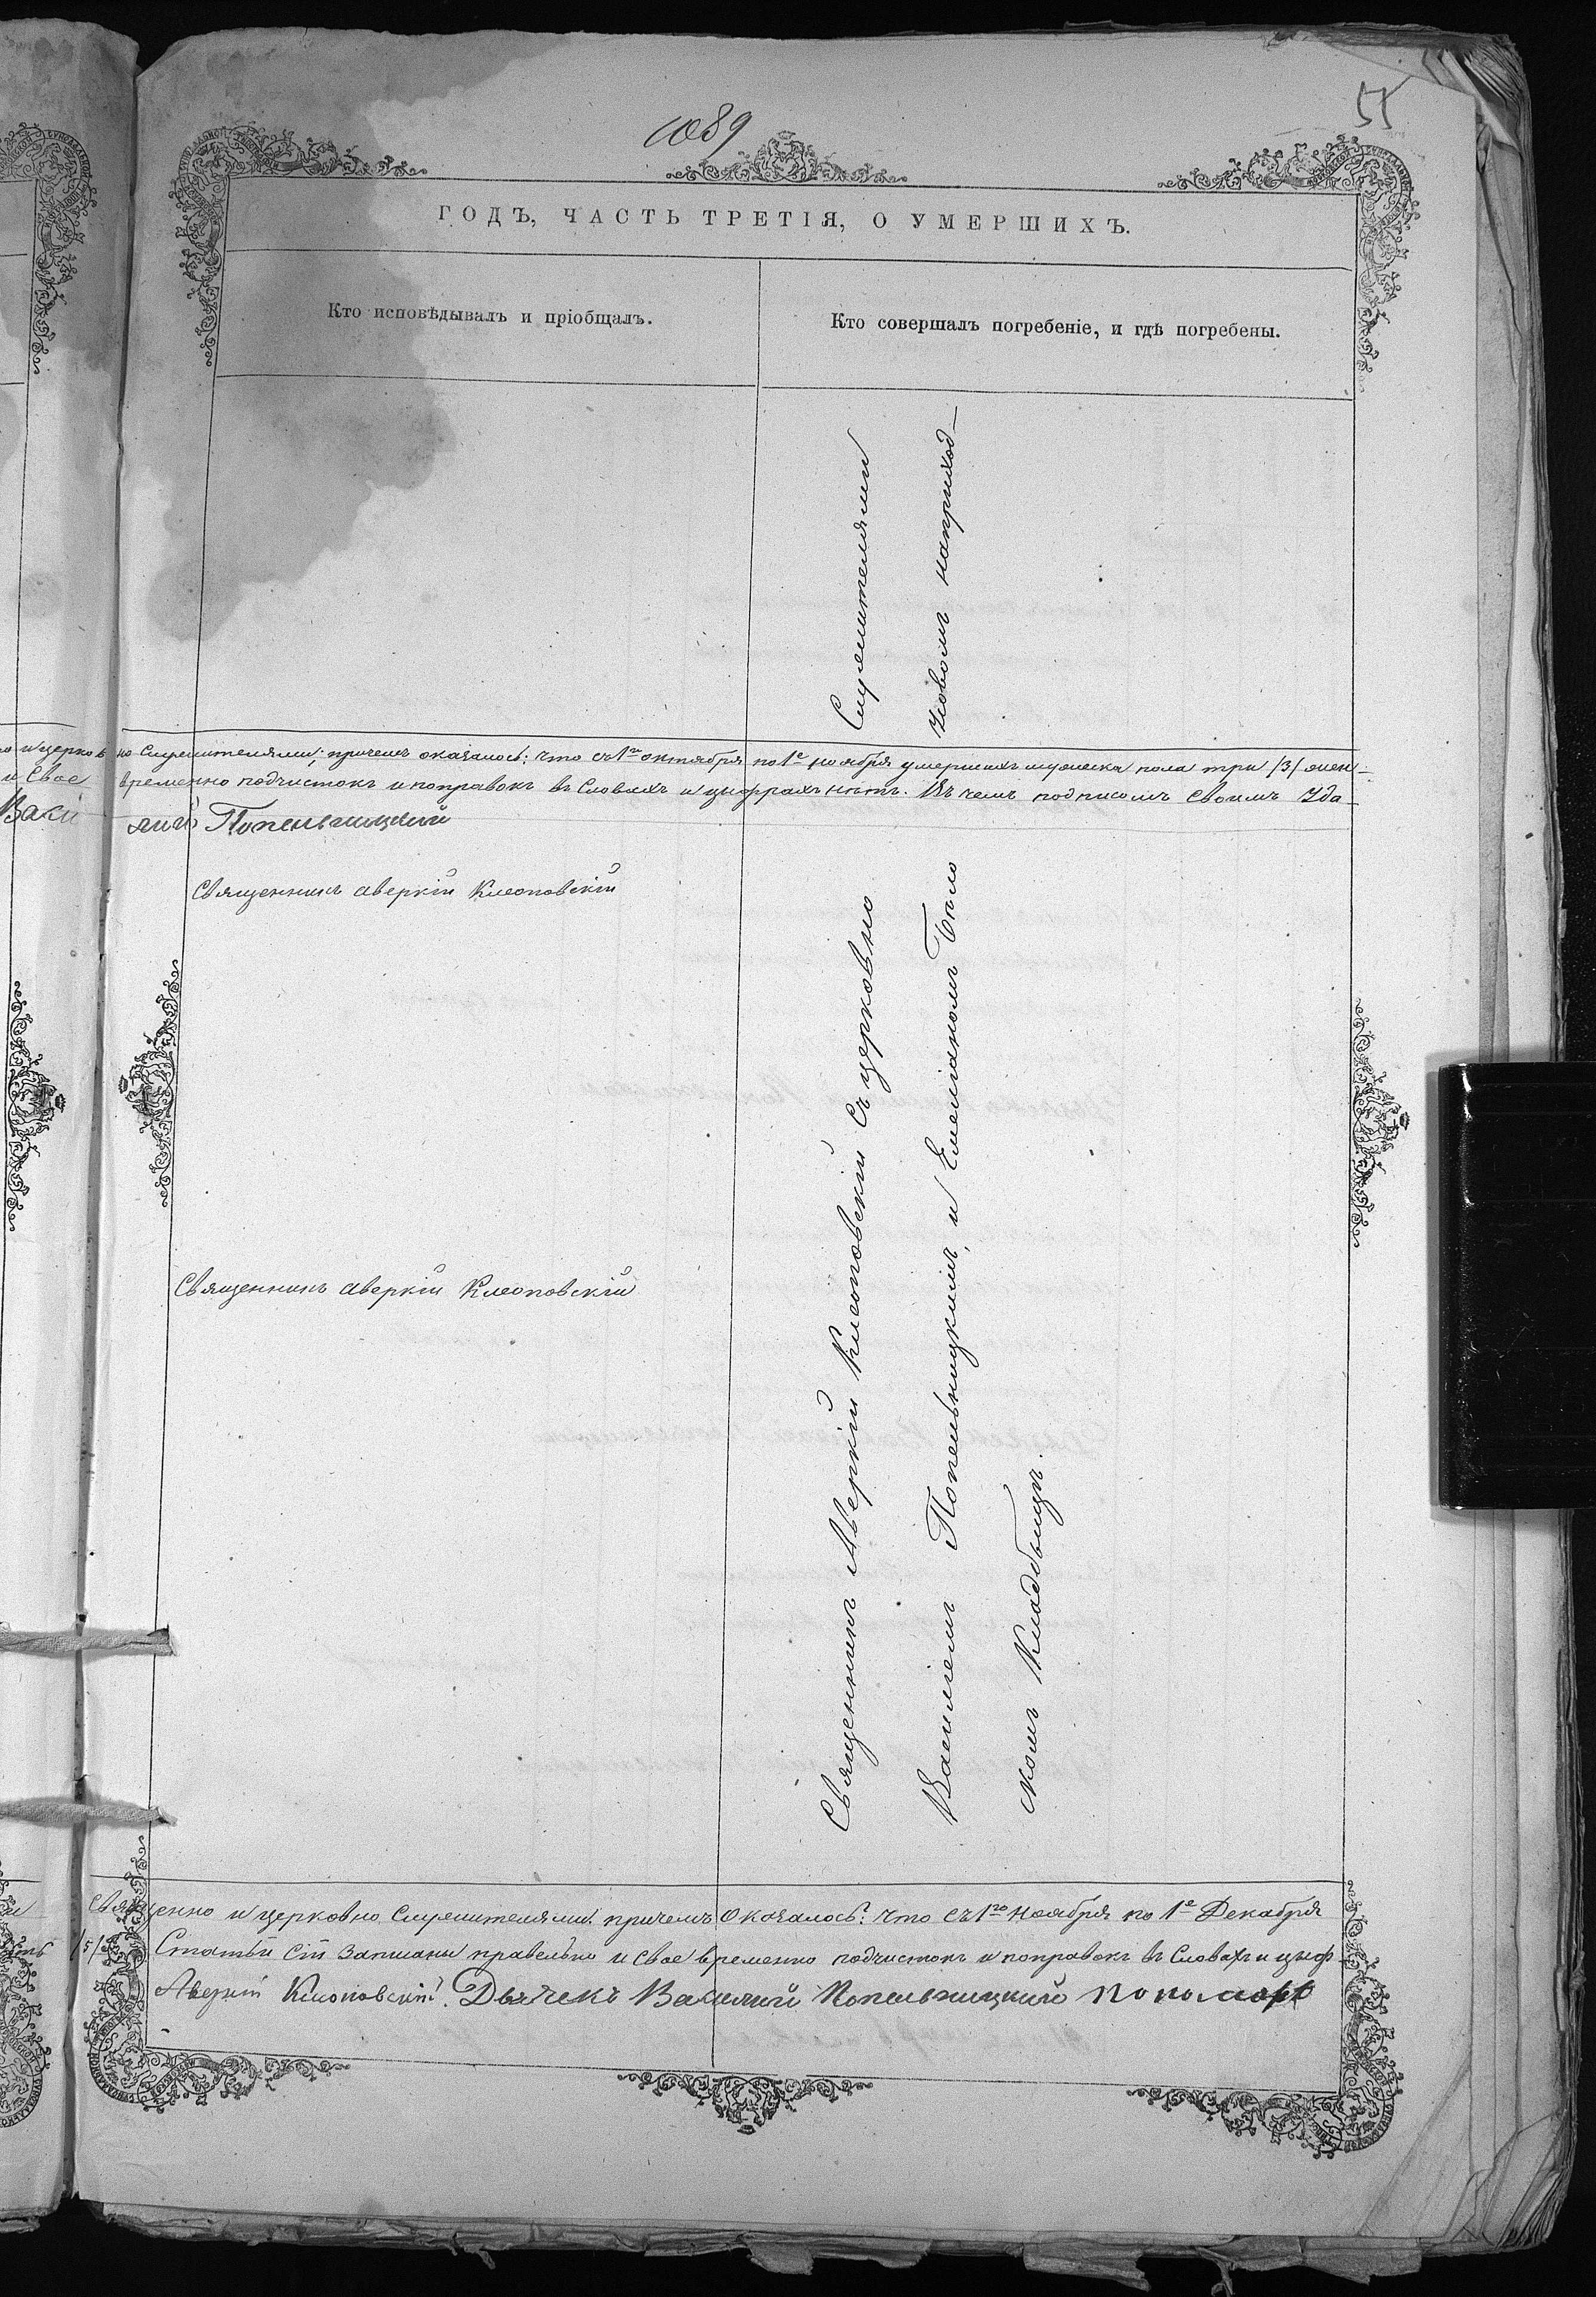 1089
55
ГОДЪ, ЧАСТЬ ТРЕТІЯ, О УМЕРШИХЪ.
Кто исповѣдывалъ и пріобщалъ.
Кто совершалъ погребеніе, и гдѣ погребены.
Служителями
ковомъ наприход-
но и церков но Служителями; причемъ оказалось: что съ 1го октября по 1е ноября умершихъ мужеска пола три /3/ жен-
и Свое временно подчистокъ и поправокъ въ Словахъ и цыфрахъ нѣтъ. Въ чемъ подписомъ своимъ Удо-
Васи лий Попельницкий
Священникъ аверкій Клоповскій
Священникъ аверкій Клоповскій
Священникъ Аверкій Клоповскій Съ церковно
Василіемъ Попельницкимъ, и Емелианомъ
скомъ Кладбищѣ.
Священно и церковно Служителями: причемъ Оказалось: что съ 1го Ноября по 1е Декабря
/5/ Статьи сіи Записаны правельно и Свое временно подчистокъ и поправокъ въ Словахъ и цыф-
Аверкій Клоповскій. Дьячекъ Василий Попельницкий Пономарь